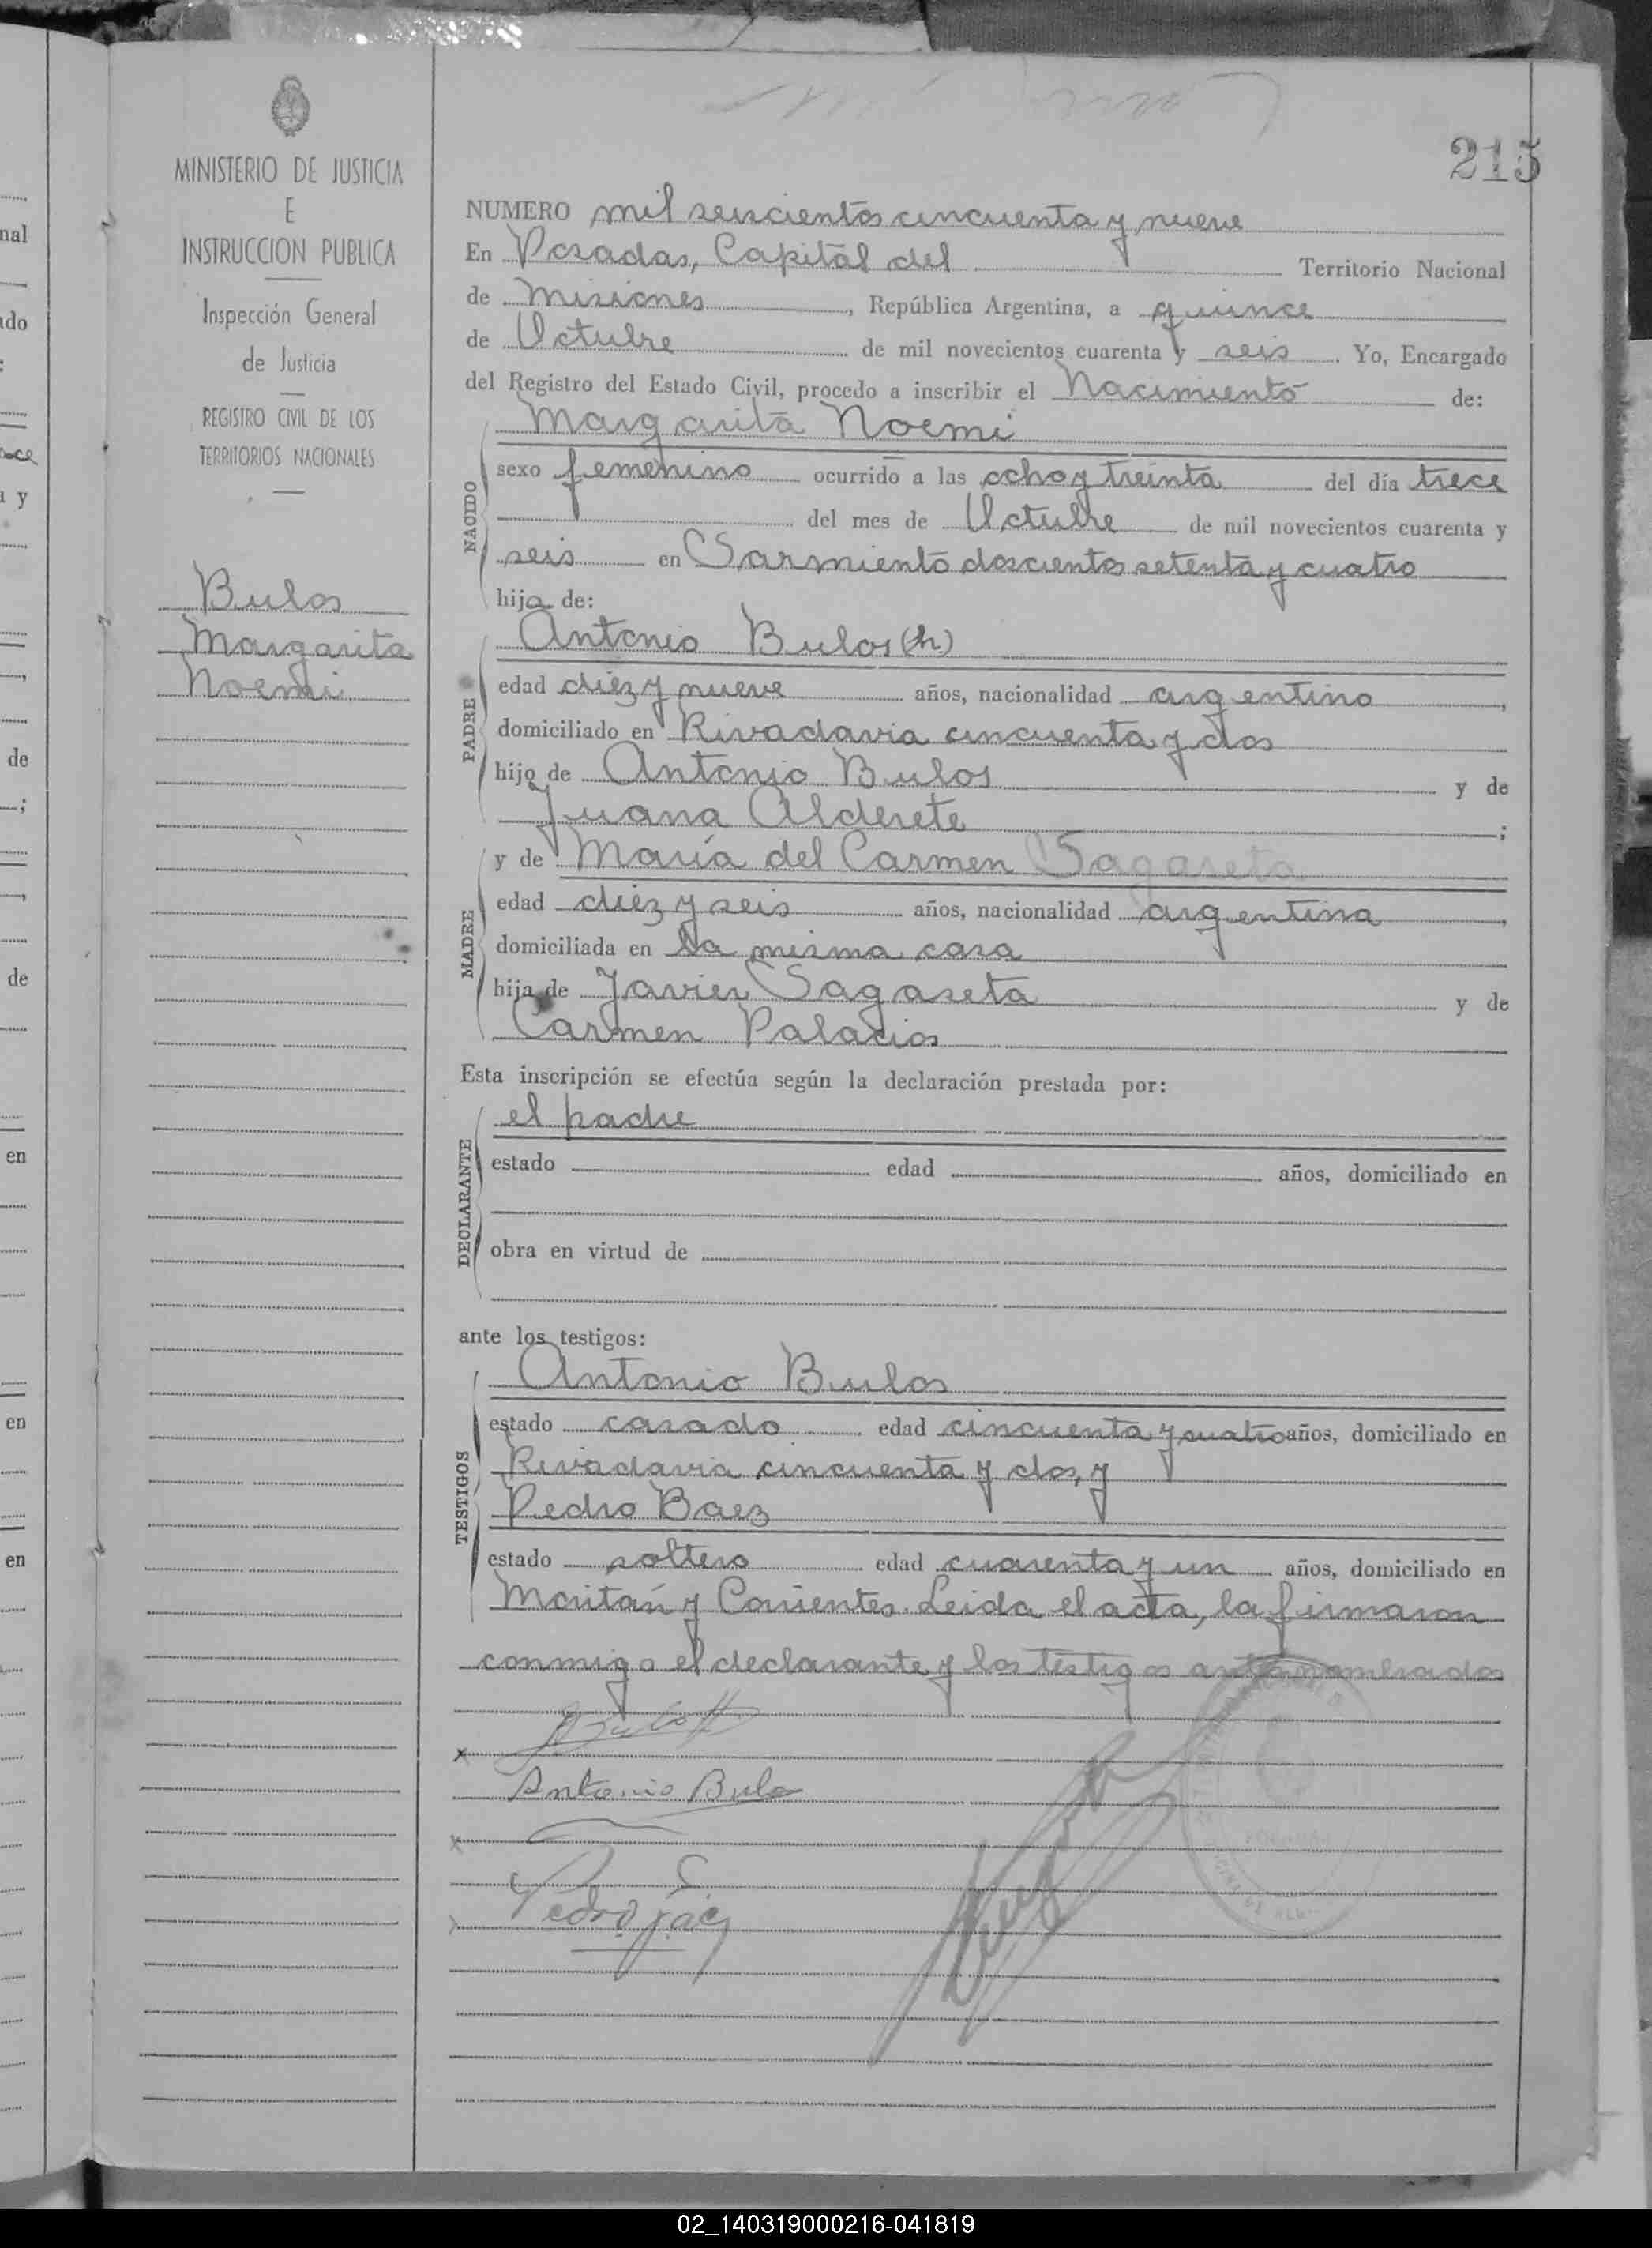 215
MINISTERIO DE JUSTICIA
E
INSTRUCCION PUBLICA
Inspección General
de Justicia
REGISTRO CIVIL DE LOS
TERRITORIOS NACIONALES
Bulos
Margarita
Noemi
NUMERO mil seiscientos cincuenta y nueve
En Posadas, Capital del Territorio Nacional
de Misiones, República Argentina, a quince
de Octubre de mil novecientos cuarenta y seis. Yo, Encargado
del Registro del Estado Civil, procedo a inscribir el Nacimiento de:
Margarita Noemi
NACIDO
sexo femenino ocurrido a las ocho y treinta del día trece
del mes de Octubre de mil novecientos cuarenta y
seis en Sarmiento doscientos setenta y cuatro
hija de:
PADRE
Antonio Bulos (h)
edad diez y nueve años, nacionalidad argentino,
domiciliado en Rivadavia cincuenta y dos
hijo de Antonio Bulos y de
Juana Alderete;
MADRE
y de María del Carmen Sagaseta
edad diez y seis años, nacionalidad argentina,
domiciliada en la misma casa
hija de Javier Sagaseta y de
Carmen Palacios
Esta inscripción se efectúa según la declaración prestada por:
DECLARANTE
el padre
estado edad años, domiciliado en
obra en virtud de
ante los testigos:
TESTIGOS
Antonio Bulos
estado casado edad cincuenta y cuatro años, domiciliado en
Rivadavia cincuenta y dos, y
Pedro Baez
estado soltero edad cuarenta y un años, domiciliado en
Moritán y Corrientes. Leida el acta, la firmaron
conmigo el declarante y los testigos antenombrados
Antonio Bulo
Pedro
02_140319000216-041819